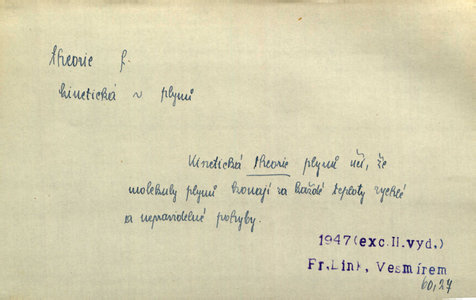 theorie f.
kinetická ~ plynů
Kinetická theorie plynů učí, že
molekuly plynů konají za každé teploty rychlé
a nepravidelné pohyby.
1947(exc.II.vyd.)
Fr.Link, Vesmírem
60,27